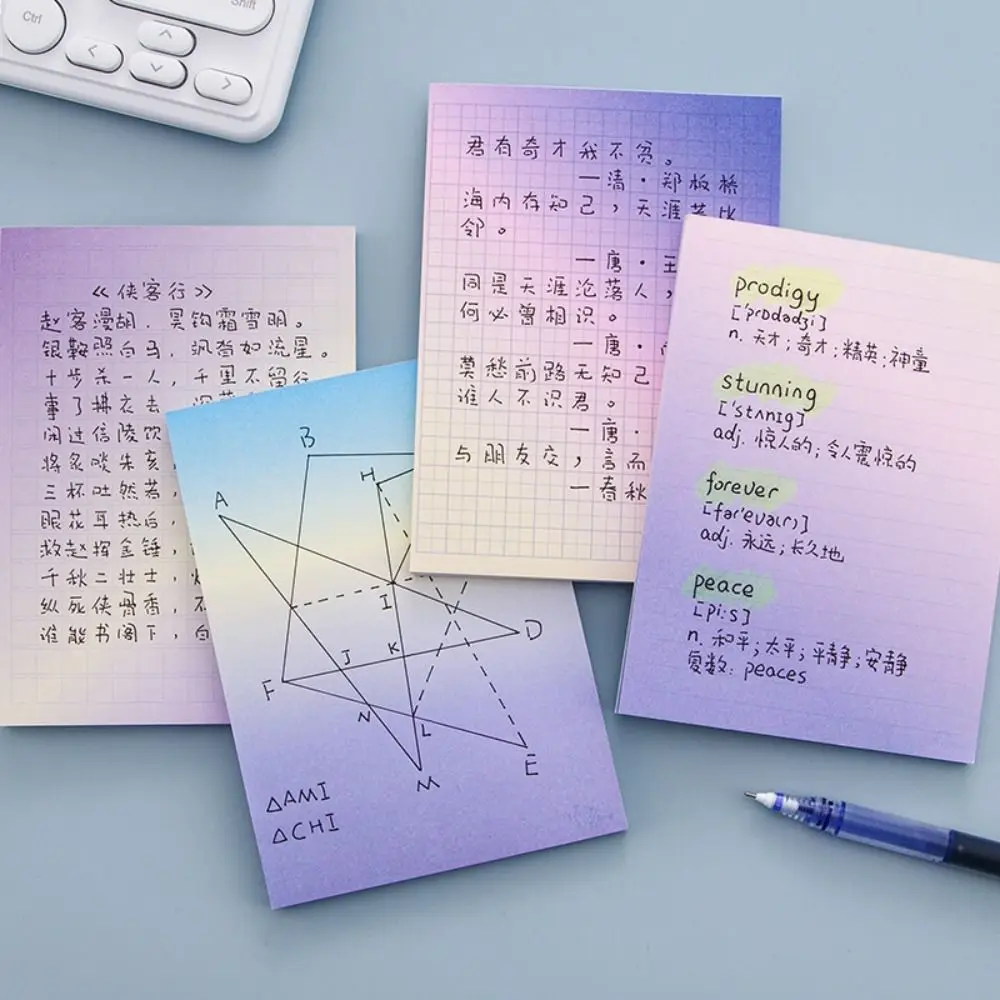 Ctrl
Shift
《侠客行》
赵客漫胡.吴钩霜雪明。
银鞍照白马，飒沓如流星。
十步杀一人，千里不留行
事了拂衣去，
闲过信陵饮
将炙啖朱亥，
三杯吐然若，
眼花耳热后，
救赵挥金锤，
千秋二壮士，
纵死侠骨香，不
谁能书阁下，白
B
H
A
I
D
J
K
F
N
L
M
E
△AMI
△CHI
君有奇才我不贫。
一清·郑板桥
海内存知己，天涯若比
邻。
一唐·王
同是天涯沦落人，
何必曾相识。
一唐·
莫愁前路无知己
谁人不识君。
一唐·
与朋友交，言而
一春秋
prodigy
['prɒdədʒi]
n. 天才;奇才;精英;神童
stunning
['stʌnɪg]
adj. 惊人的;令人震惊的
forever
[fər'evə(r)]
adj. 永远;长久地
peace
[pi:s]
n. 和平;太平;平静;安静
复数: peaces